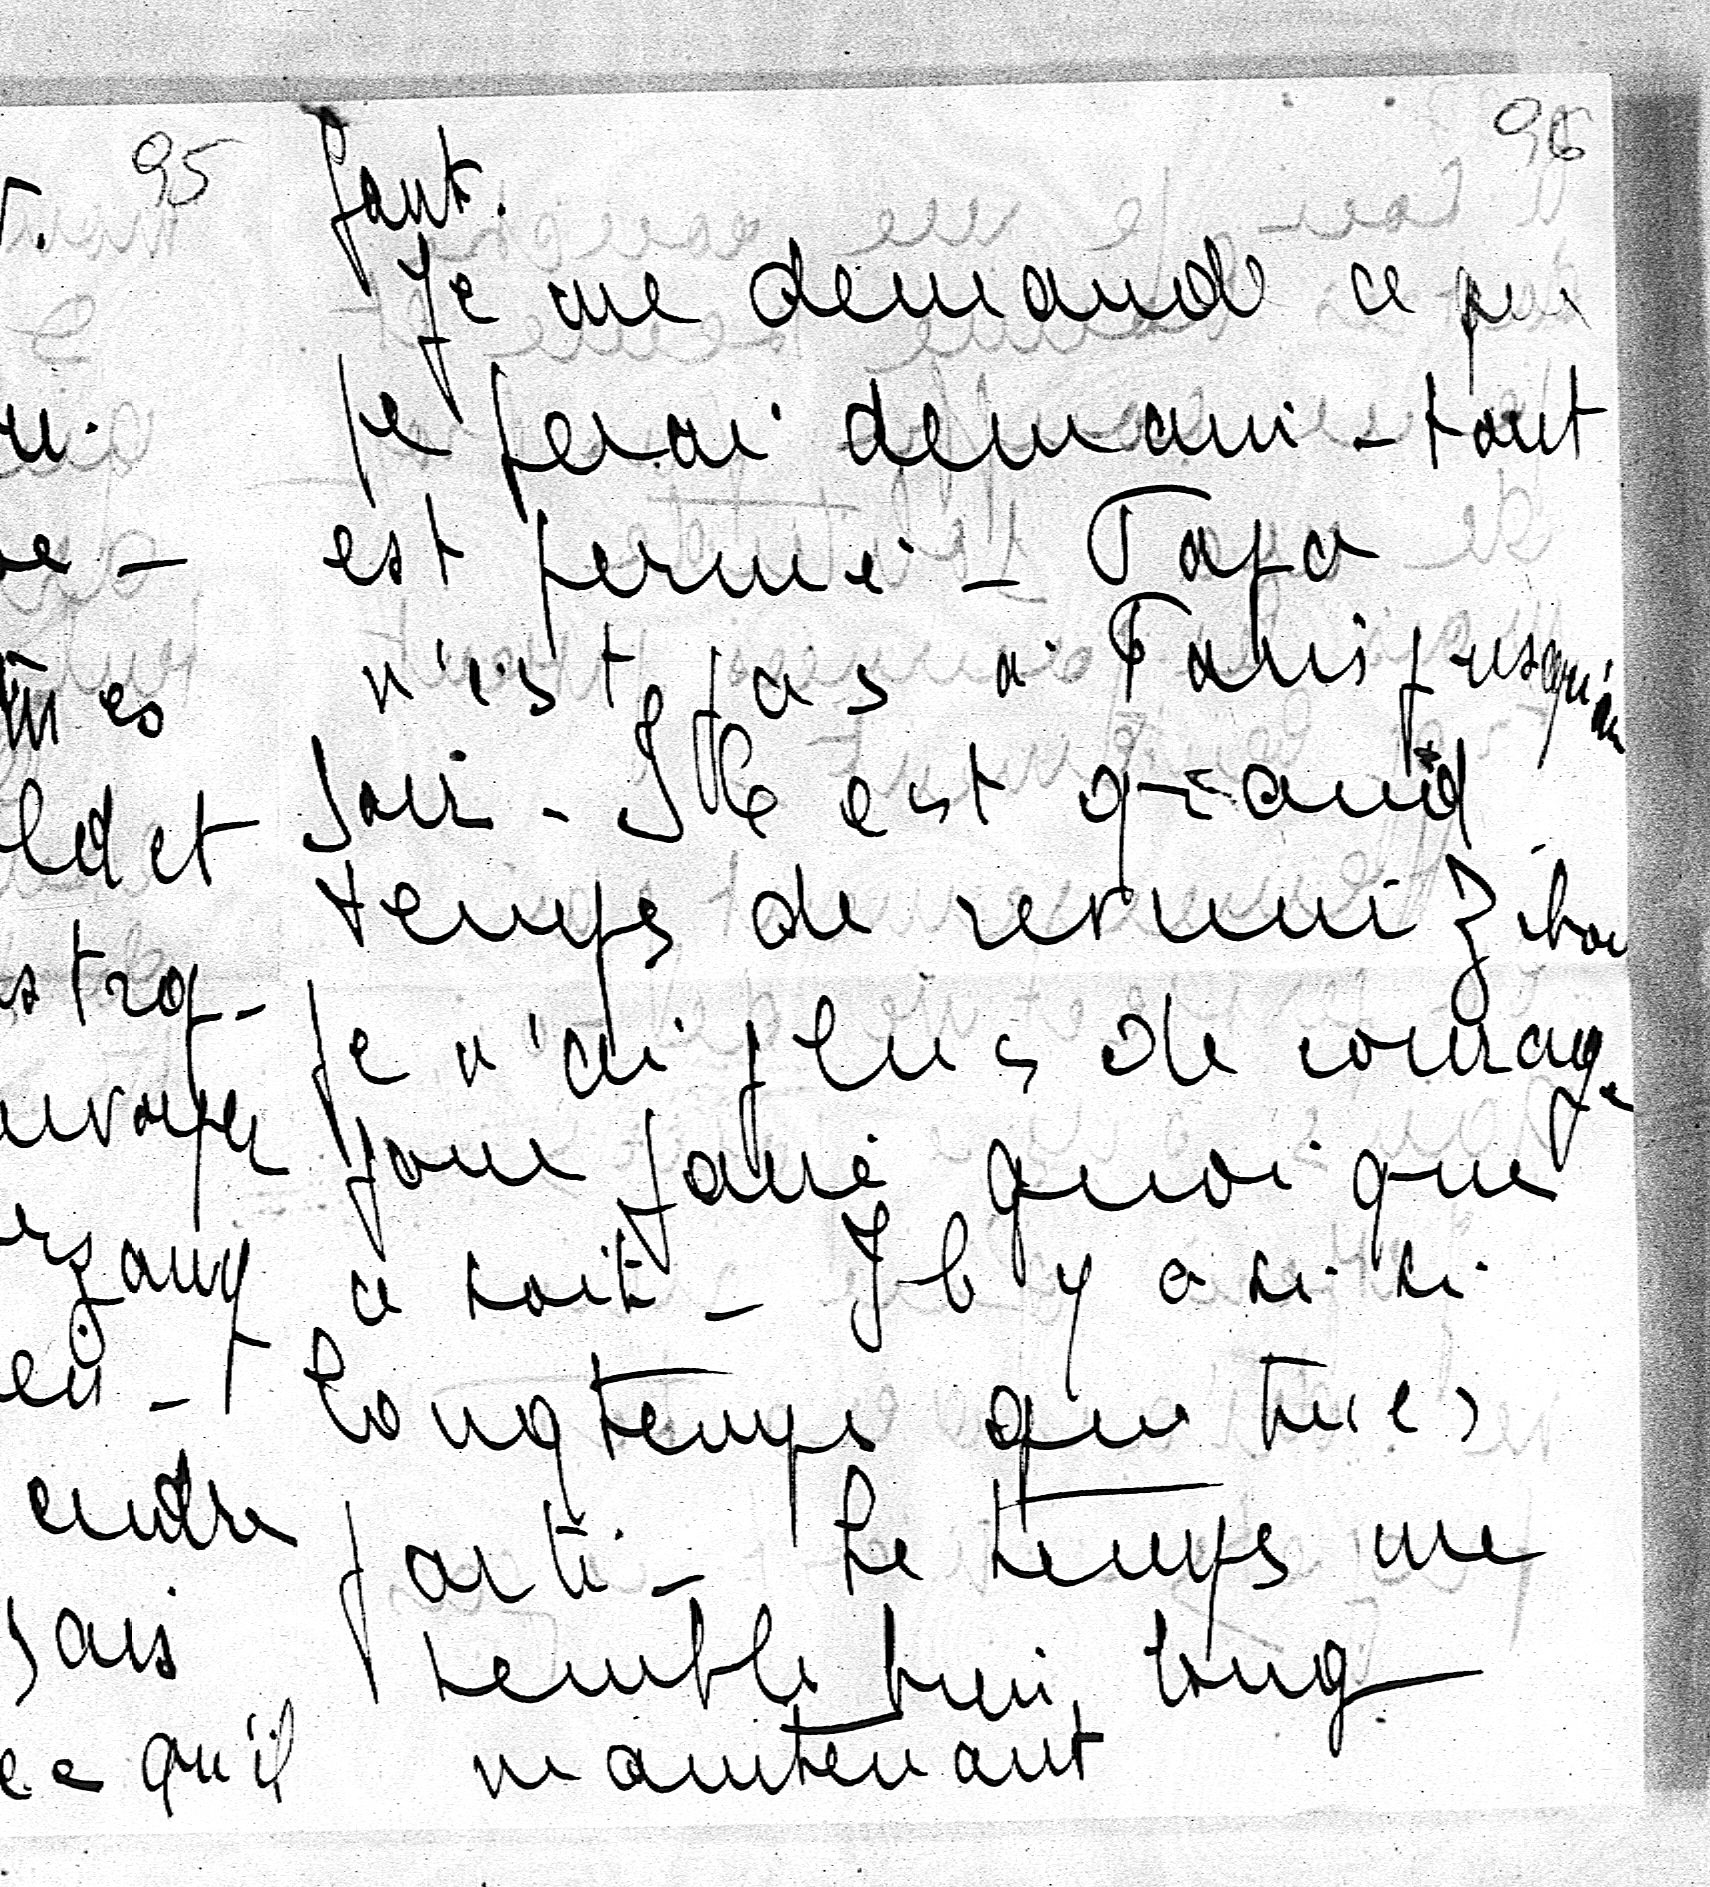 95
ld et
s trop -
endre
sais
qu'il
96
faut.
Je me demande ce que
je ferai demain - tout
est fermé - Papa
n'est pas à Paris jusqu'au
soir - Il est grand
temps de revenir Zibou
je n'ai plus de courage
pour faire quoi que
ce soit - Il y a si si
longtemps que tu es
parti - Le temps me
semble bien long
maintenant